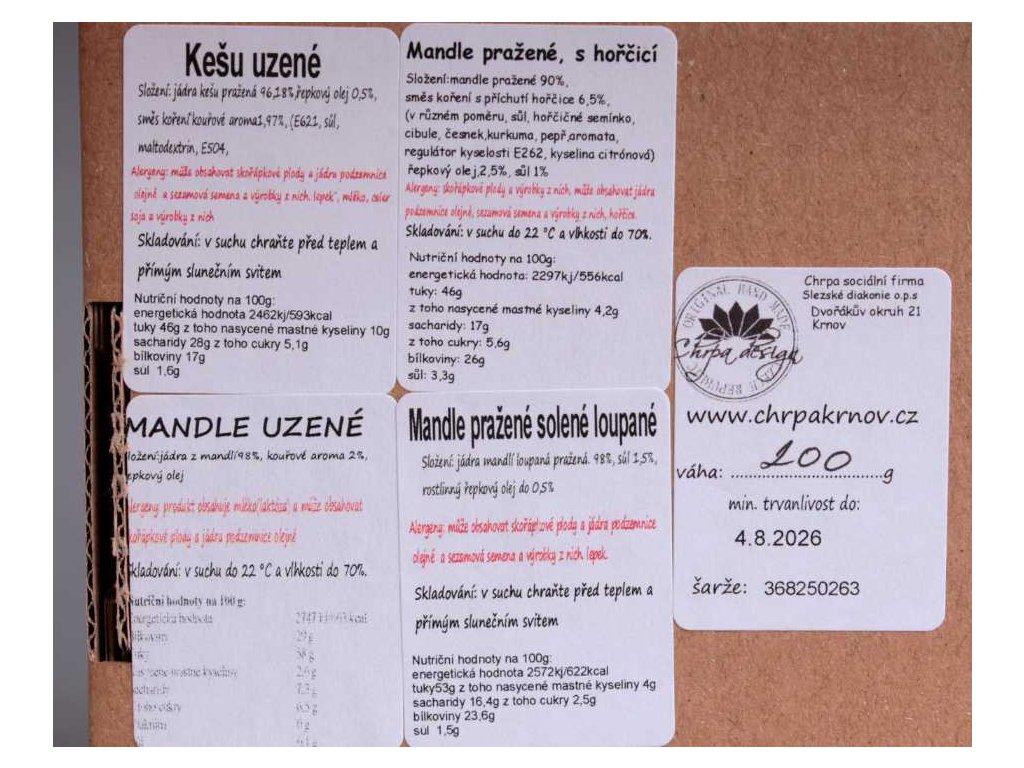 Kešu uzené
Složení: jádra kešu pražená 96,18%,řepkový olej 0,5%,
směs koření kouřové aroma1,97%, (E621, sůl,
maltodextrin, E504,
Alergeny: může obsahovat skořápkové plody a jádra podzemnice
olejné a sezamová semena a výrobky z nich. lepek", mléko, celer
soja a výrobky z nich
Skladování: v suchu chraňte před teplem a
přímým slunečním svitem
Nutriční hodnoty na 100g:
energetická hodnota 2462kj/593kcal
tuky 46g z toho nasycené mastné kyseliny 10g
sacharidy 28g z toho cukry 5,1g
bílkoviny 17g
sůl 1,6g
Mandle pražené, s hořčicí
Složení:mandle pražené 90%,
směs koření s příchutí hořčice 6,5%,
(v různém poměru, sůl, hořčičné semínko,
cibule, česnek,kurkuma, pepř,aromata,
regulátor kyselosti E262, kyselina citrónová)
řepkový olej,2,5%, sůl 1%
Alergeny: skořápkové plody a výrobky z nich, může obsahovat jádra
podzemnice olejné, sezamová semena a výrobky z nich, hořčice.
Skladování: v suchu do 22 °C a vlhkosti do 70%.
Nutriční hodnoty na 100g:
energetická hodnota: 2297kj/556kcal
tuky: 46g
z toho nasycené mastné kyseliny 4,2g
sacharidy: 17g
z toho cukry: 5,6g
bílkoviny: 26g
sůl: 3,3g
MANDLE UZENÉ
ložení:jádra z mandlí98%, kouřové aroma 2%,
epkový olej
lergeny: produkt obsahuje mléko(laktóza) a může obsahovat
kořápkové plody a jádra podzemnice olejné
Skladování: v suchu do 22 °C a vlhkosti do 70%.
Nutriční hodnoty na 100 g:
nergetická hodnota
29 g
2,6 g
7,3 g
Mandle pražené solené loupané
Složení: jádra mandlí loupaná pražená. 98%, sůl 1,5%,
rostlinný řepkový olej do 0,5%
Alergeny: může obsahovat skořápkové plody a jádra podzemnice
olejné a sezamová semena a výrobky z nich. lepek.
Skladování: v suchu chraňte před teplem a
přímým slunečním svitem
Nutriční hodnoty na 100g:
energetická hodnota 2572kj/622kcal
tuky53g z toho nasycené mastné kyseliny 4g
sacharidy 16,4g z toho cukry 2,5g
bílkoviny 23,6g
sůl 1,5g
Chrpa sociální firma
Slezské diakonie o.p.s
Dvořákův okruh 21
Krnov
ORIGINAL HAND MADE
Chrpa design
www.chrpakrnov.cz
váha: 100 g
min. trvanlivost do:
4.8.2026
šarže: 368250263